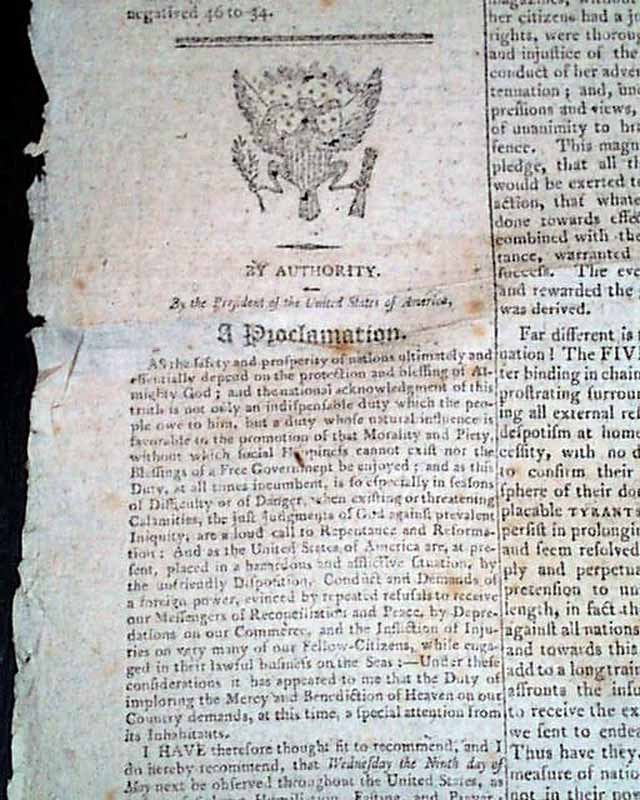 negatived 46 to 34.
BY AUTHORITY.
By the President of the United States of America,
A Proclamation.
AS the safety and prosperity of nations ultimately and
essentially depend on the protection and blessing of Al-
mighty God ; and the national acknowledgment of this
truth is not only an indispensable duty which the peo-
ple owe to him, but a duty whose natural influence is
favorable to the promotion of that Morality and Piety,
without which social Happiness cannot exist nor the
Blessings of a Free Government be enjoyed ; and as this
Duty, at all times incumbent, is so especially in seasons
of Difficulty or of Danger, when existing or threatening
Calamities, the just Judgments of God against prevalent
Iniquity, are a loud call to Repentance and Reforma-
tion : And as the United States of America are, at pre-
sent, placed in a hazardous and afflictive situation, by
the unfriendly Disposition, Conduct and Demands of
a foreign power, evinced by repeated refusals to receive
our Messengers of Reconciliation and Peace, by Depre-
dations on our Commerce, and the Infliction of Inju-
ries on very many of our Fellow-Citizens, while enga-
ged in their lawful business on the Seas :—Under these
considerations it has appeared to me that the Duty of
imploring the Mercy and Benediction of Heaven on our
Country demands, at this time, a special attention from
its Inhabitants.
I HAVE therefore thought fit to recommend, and I
do hereby recommend, that Wednesday the Ninth day of
May next be observed throughout the United States, as
Solemn Humiliation, Fasting and Prayer
her citizens had a
rights, were
and injustice of the
conduct of her
tenuation ; and,
pressions and views,
of unanimity to
fence. This
pledge, that all
would be exerted
action, that
done towards
combined with the
tance, warranted
success. The
and rewarded the
was derived.
Far different is
uation ! The
ter binding in
prostrating
ing all external
despotism at home
cessity, with no
to confirm their
sphere of their
placable TYRANTS
persist in
and seem resolved
ply and
pretension to
length, in fact
against all nations
and towards this
add to a long train
affronts the
to receive the
we sent to
Thus have they
measure of
not in their